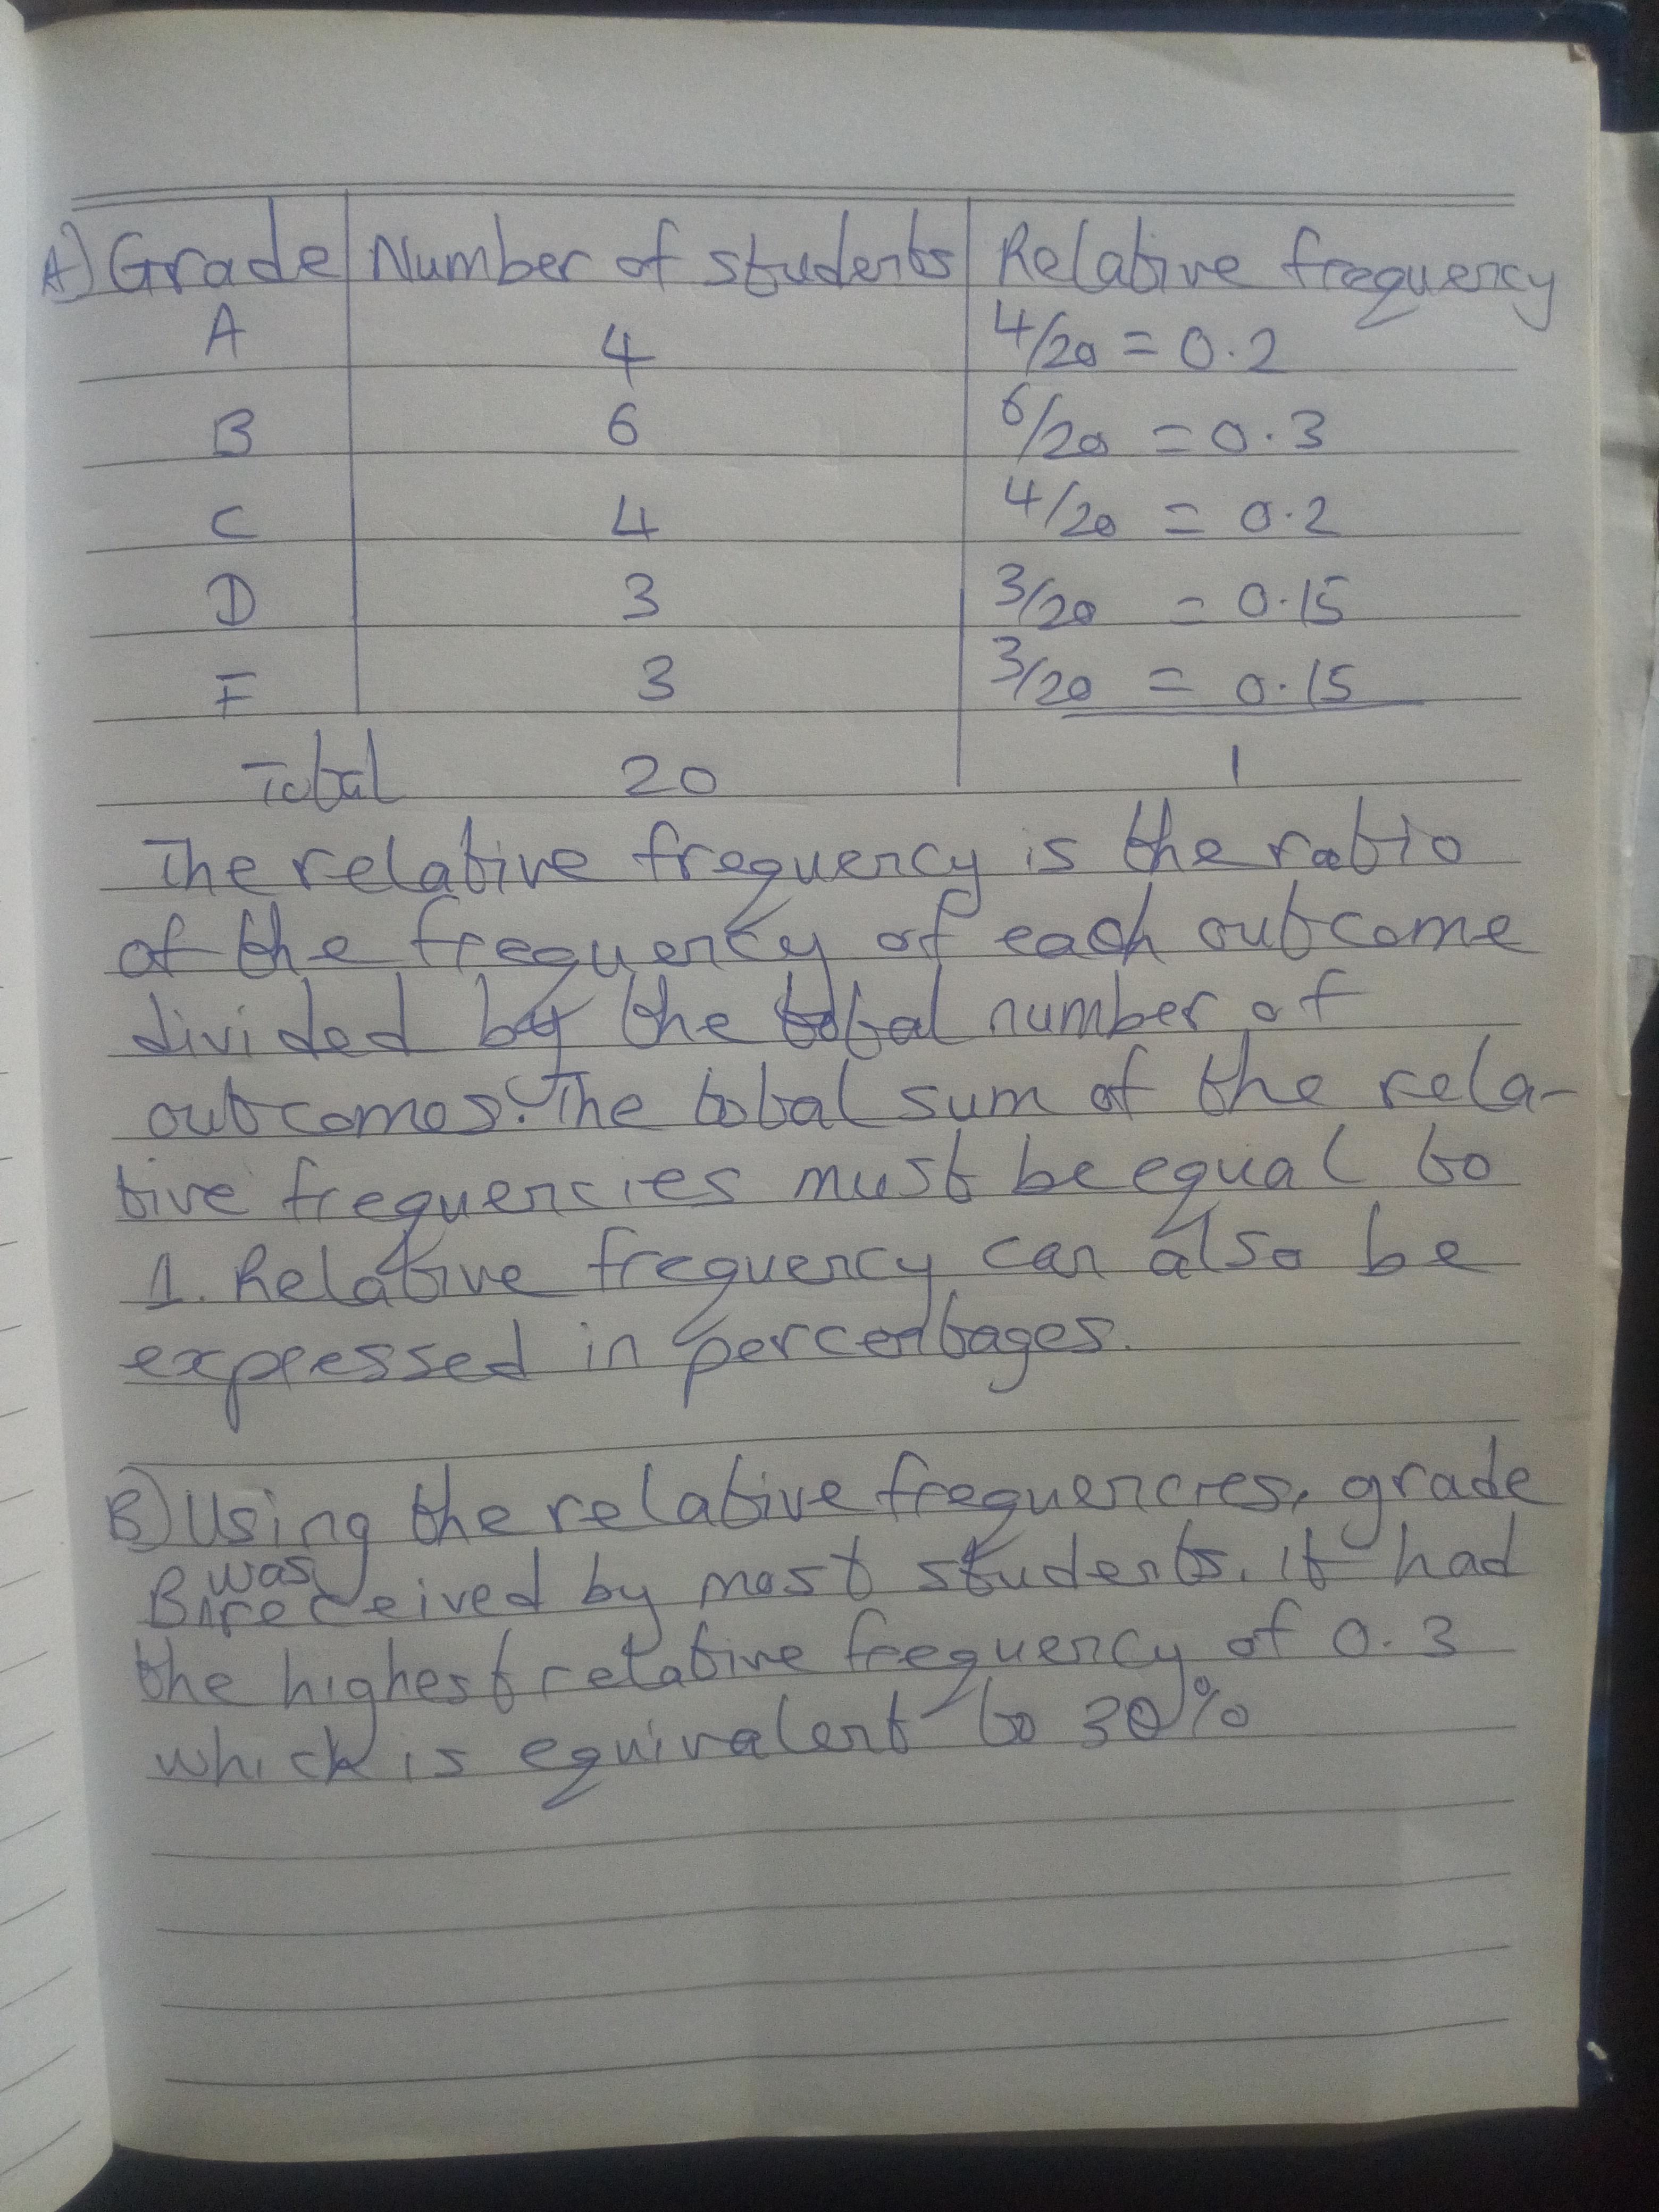 A) Grade Number of students Relative frequency
A 4 4/20 = 0.2
B 6 6/20 = 0.3
C 4 4/20 = 0.2
D 3 3/20 = 0.15
F 3 3/20 = 0.15
Total 20 1
The relative frequency is the ratio
of the frequency of each outcome
divided by the total number of
outcomes. The total sum of the rela-
tive frequencies must be equal to
1. Relative frequency can also be
expressed in percentages.
B) Using the relative frequencies, grade
B was received by most students. It had
the highest relative frequency of 0.3
which is equivalent to 30%